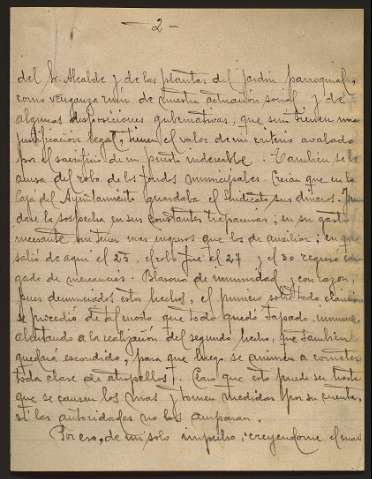 - 2 -
del Sr. Alcalde y de las plantas del jardin parroquial,
como venganza ruin de nuestra actuación social y de
algunas disposiciones gubernativas, que si tienen una
justificación legal, tienen el valor de mi criterio avalado
por el sacrificio de mi piedra inderible. También se le
acusa del robo de los fondos municipales. Creían que en la
Caja del Ayuntamiento guardaba el Sindicato sus dineros.
dase la sospecha en sus constantes trapacerias; en su gasto
mensante, sin tener mas ingresos que los de auxiliar; en que
salió de aquí el 25, el robo fue el 27 y el 30 regresó car
gado de mercancías. Blasona de inmunidad y con razon,
pues denunciados estos hechos, el primero
se procedió de tal modo que todo quedó tapado,
alentando a la realización del segundo hecho, que también
quedará escondido, para que luego se animen a cometer
toda clase de atropellos. Claro que esto puede ser hasta
que se cansen los mas y tomen medidas por su cuenta,
si las autoridades no los amparan.
Por eso, de mi solo impulso, creyendome el mas